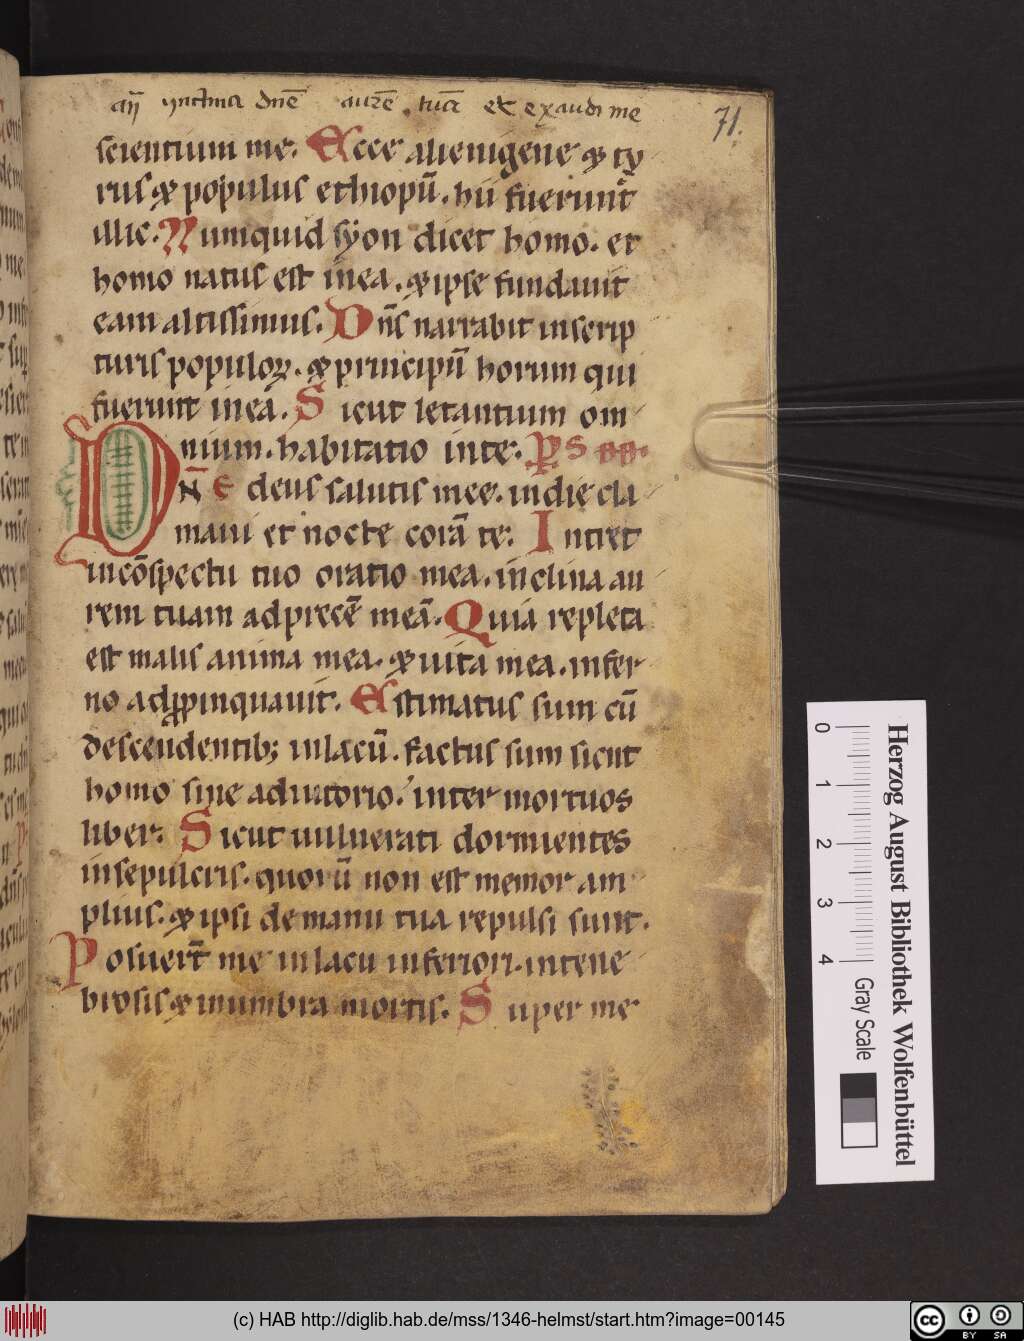 an̄ ynclina dn̄e aurē tuā et exaudi me
71.
scientium me. Ecce alienigene ⁊ ty
rus ⁊ populus ethiopū. hii fuerunt
illic. Numquid syon dicet homo. et
homo natus est in ea. ⁊ ipse fundauit
eam altissimus. Dn̄s narrabit in scrip
turis populoꝝ. ⁊ principū horum qui
fuerunt in eā. Sicut letantium om
nium. habitatio in te. Ps
Dn̄e deus salutis mee. in die cla
maui et nocte corā te. Intret
in cōspectu tuo oratio mea. inclina au
rem tuam ad precē meā. Quia repleta
est malis anima mea. ⁊ uita mea. infer
no adꝓpinquauit. Estimatus sum cū
descendentib; in lacū. factus sum sicut
homo sine adiutorio. inter mortuos
liber. Sicut uulnerati dormientes
in sepulcris. quorū non est memor am
plius. ⁊ ipsi de manu tua repulsi sunt.
Posuer̄t me in lacu inferiori. in tene
brosis ⁊ in umbra mortis. Super me
Herzog August Bibliothek Wolfenbüttel
0 1 2 3 4 Gray Scale
(c) HAB http://diglib.hab.de/mss/1346-helmst/start.htm?image=00145
cc BY SA